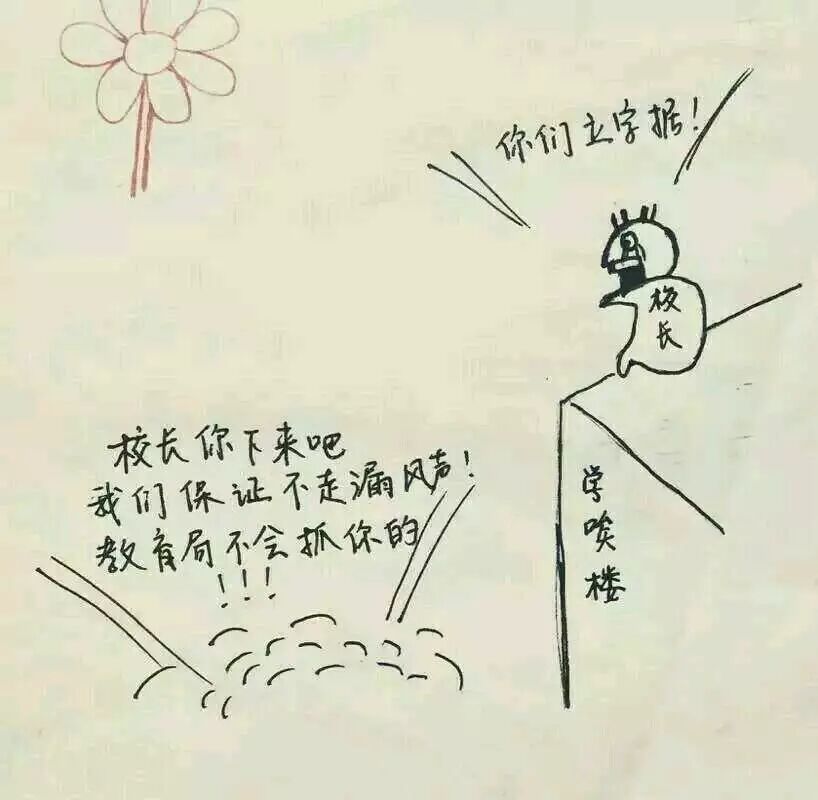 你们立字据！
校长
校长你下来吧
我们保证不走漏风声！
教育局不会抓你的
！！！
学唉楼